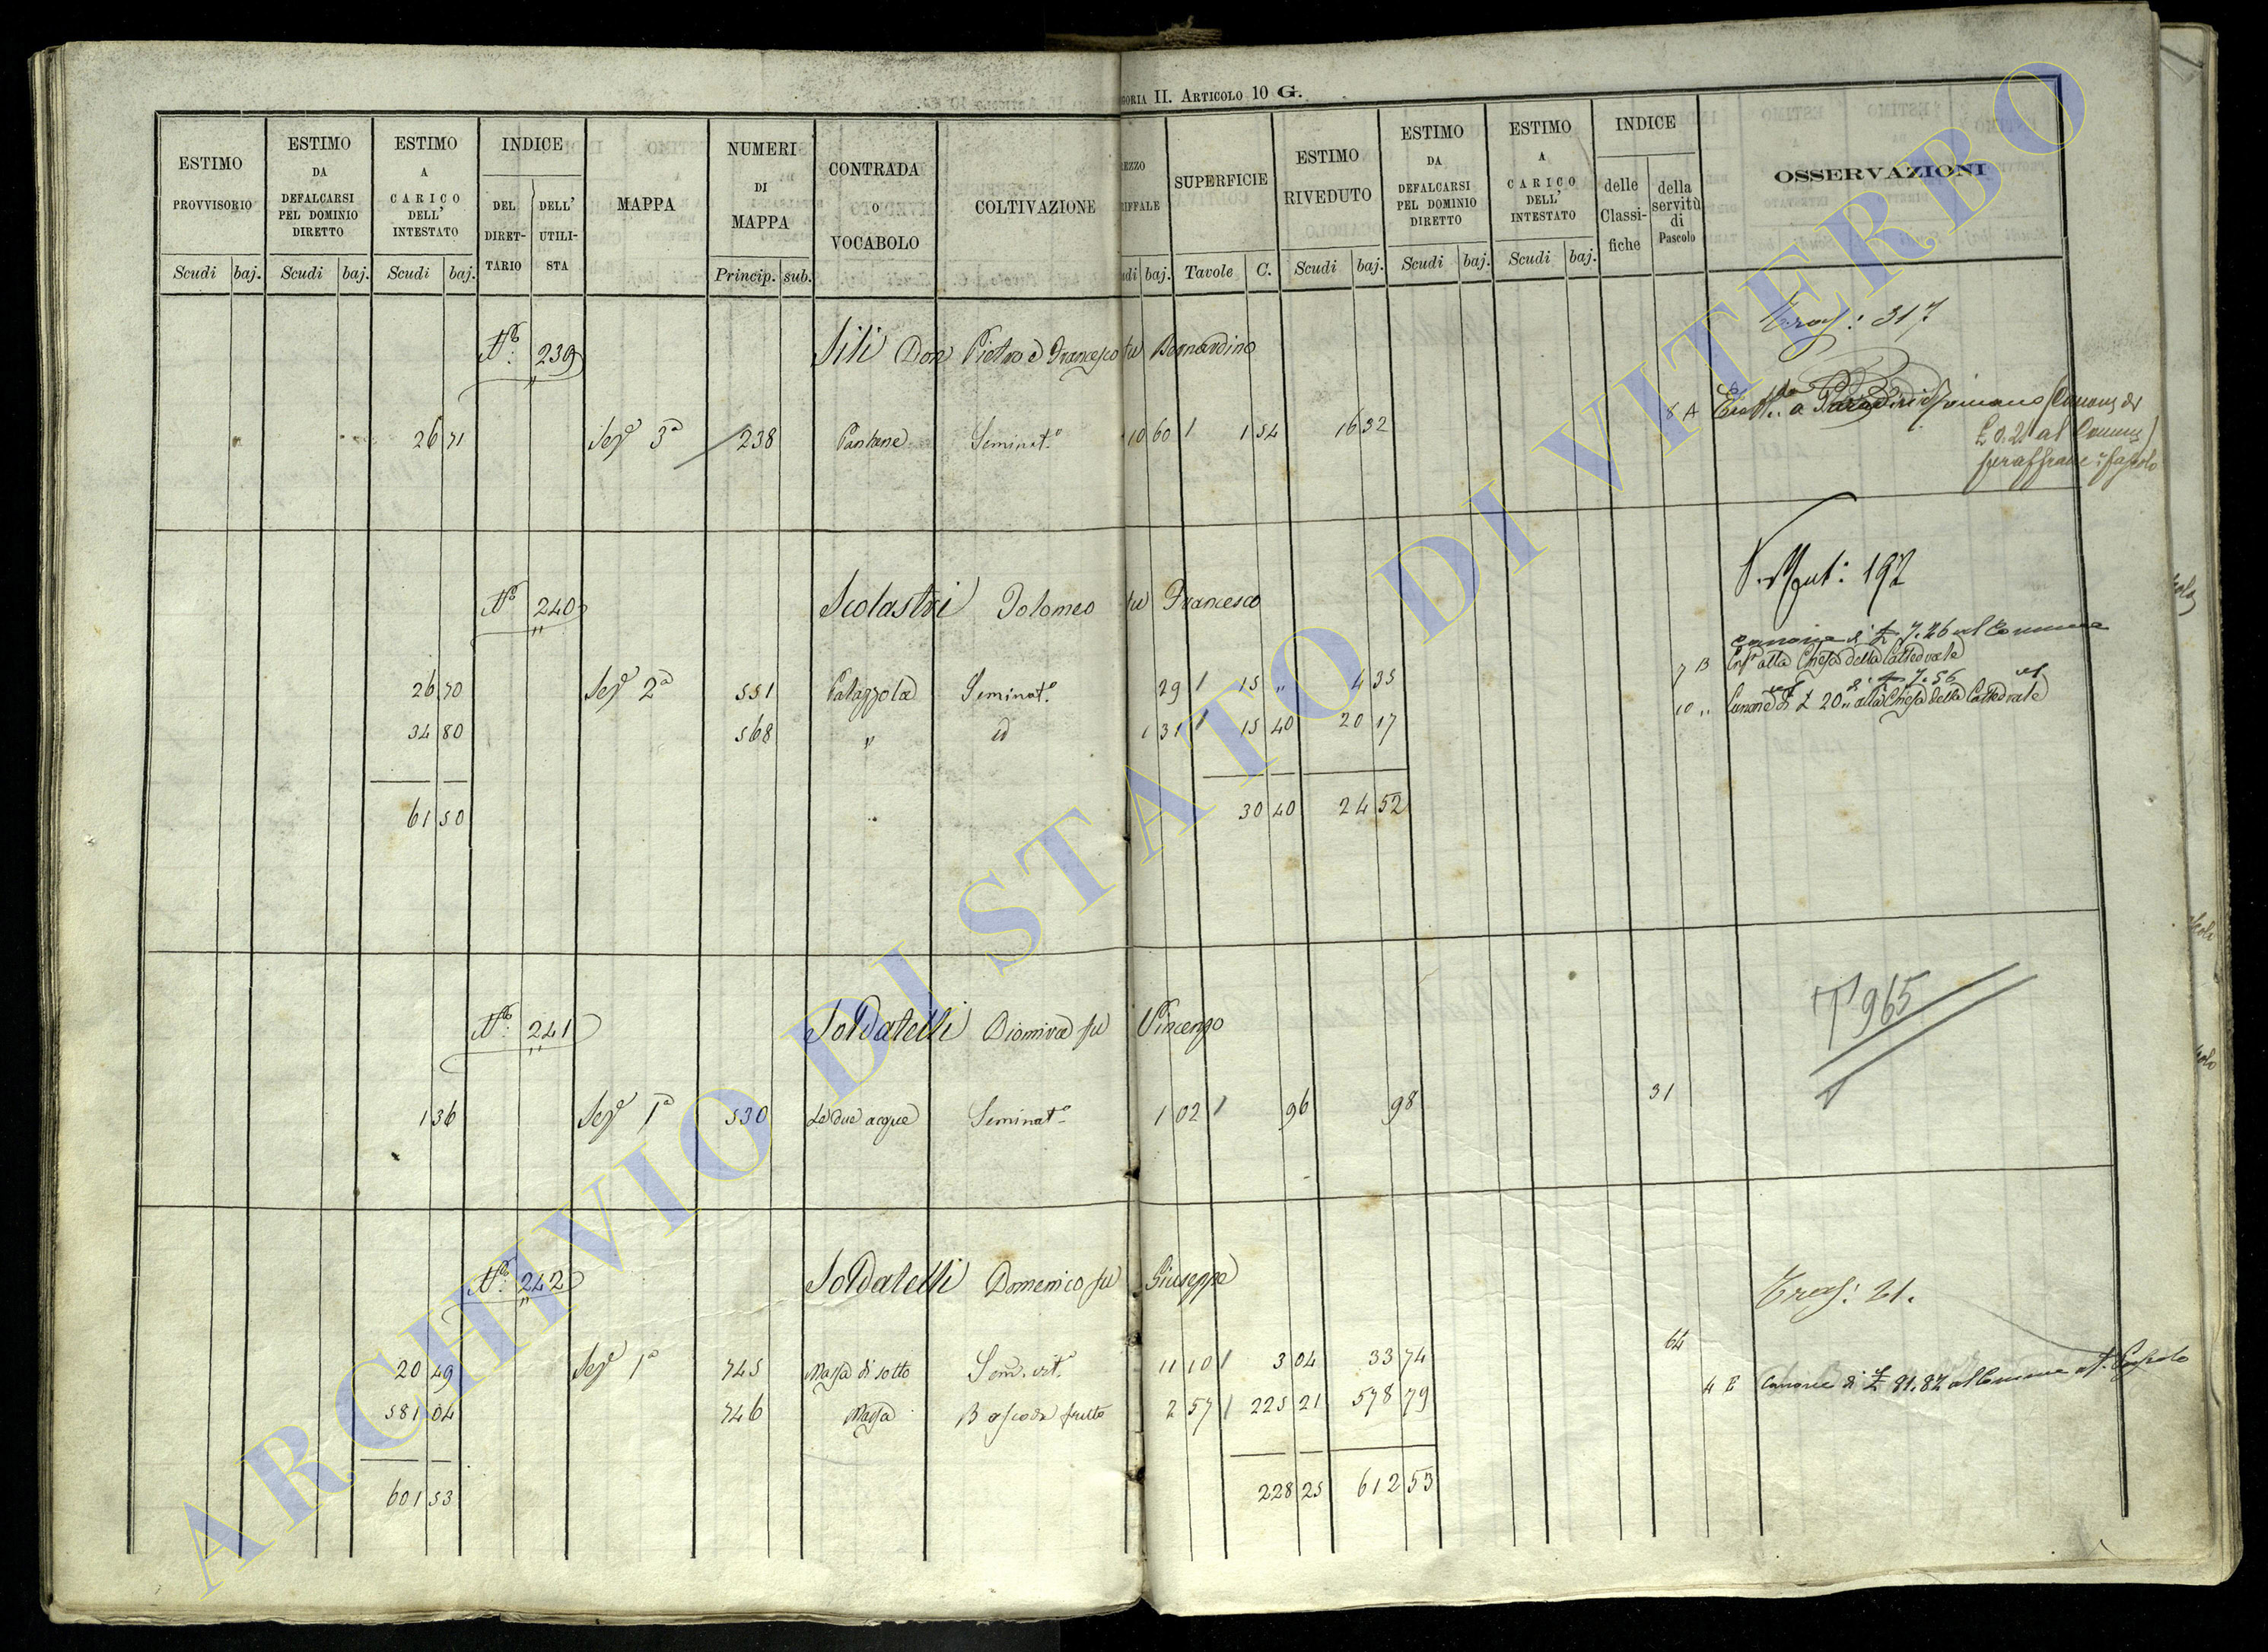 GORIA II. ARTICOLO 10 G.
ESTIMO PROVVISORIO
Scudi baj.
ESTIMO DA DEFALCARSI PEL DOMINIO DIRETTO
Scudi baj.
ESTIMO A CARICO DELL' INTESTATO
Scudi baj.
INDICE
DEL DIRET-TARIO
DELL' UTILI-STA
MAPPA
NUMERI DI MAPPA
Princip. sub.
CONTRADA O VOCABOLO
COLTIVAZIONE
EZZO IFFALE
di baj.
SUPERFICIE
Tavole C.
ESTIMO RIVEDUTO
Scudi baj.
ESTIMO DA DEFALCARSI PEL DOMINIO DIRETTO
Scudi baj.
ESTIMO A CARICO DELL' INTESTATO
Scudi baj.
INDICE
delle Classi-fiche
della servitù di Pascolo
OSSERVAZIONI
Trasf: 317
No. 239 Sili Don Pietro e Francesco fu Bernardino
26 71 Sez.e 3a 238 Pantane Seminat.o 10 60 1 1 54 16 32 8 A
No. 240 Scolastri Tolomeo fu Francesco
V. Mut: 192
Canone di £ 7.26 al Comune
26 70 Sez.e 2a 551 Palazzola Seminat.o 29 1 15 " 4 35 7 B alla Chiesa della Cattedrale
34 80 568 " id 1 31 1 15 40 20 17 10 " Canone di £ 20 " alla Chiesa della Cattedrale
61 50 30 40 24 52
No. 241 Soldatelli Dionira fu Vincenzo
T 965
1 36 Sez.e 1a 530 Le due acque Seminat.o 1 02 1 96 98 31
No. 242 Soldatelli Domenico fu Giuseppe
Trasf: 21.
20 49 Sez.e 1a 745 Massa di sotto Sem. vit.o 11 10 1 3 04 33 74 64
581 04 746 Massa B a frutto 2 57 1 225 21 578 79 4 E Canone di £ 81.82 al Comune
601 53 228 25 612 53
ARCHIVIO DI STATO DI VITERBO